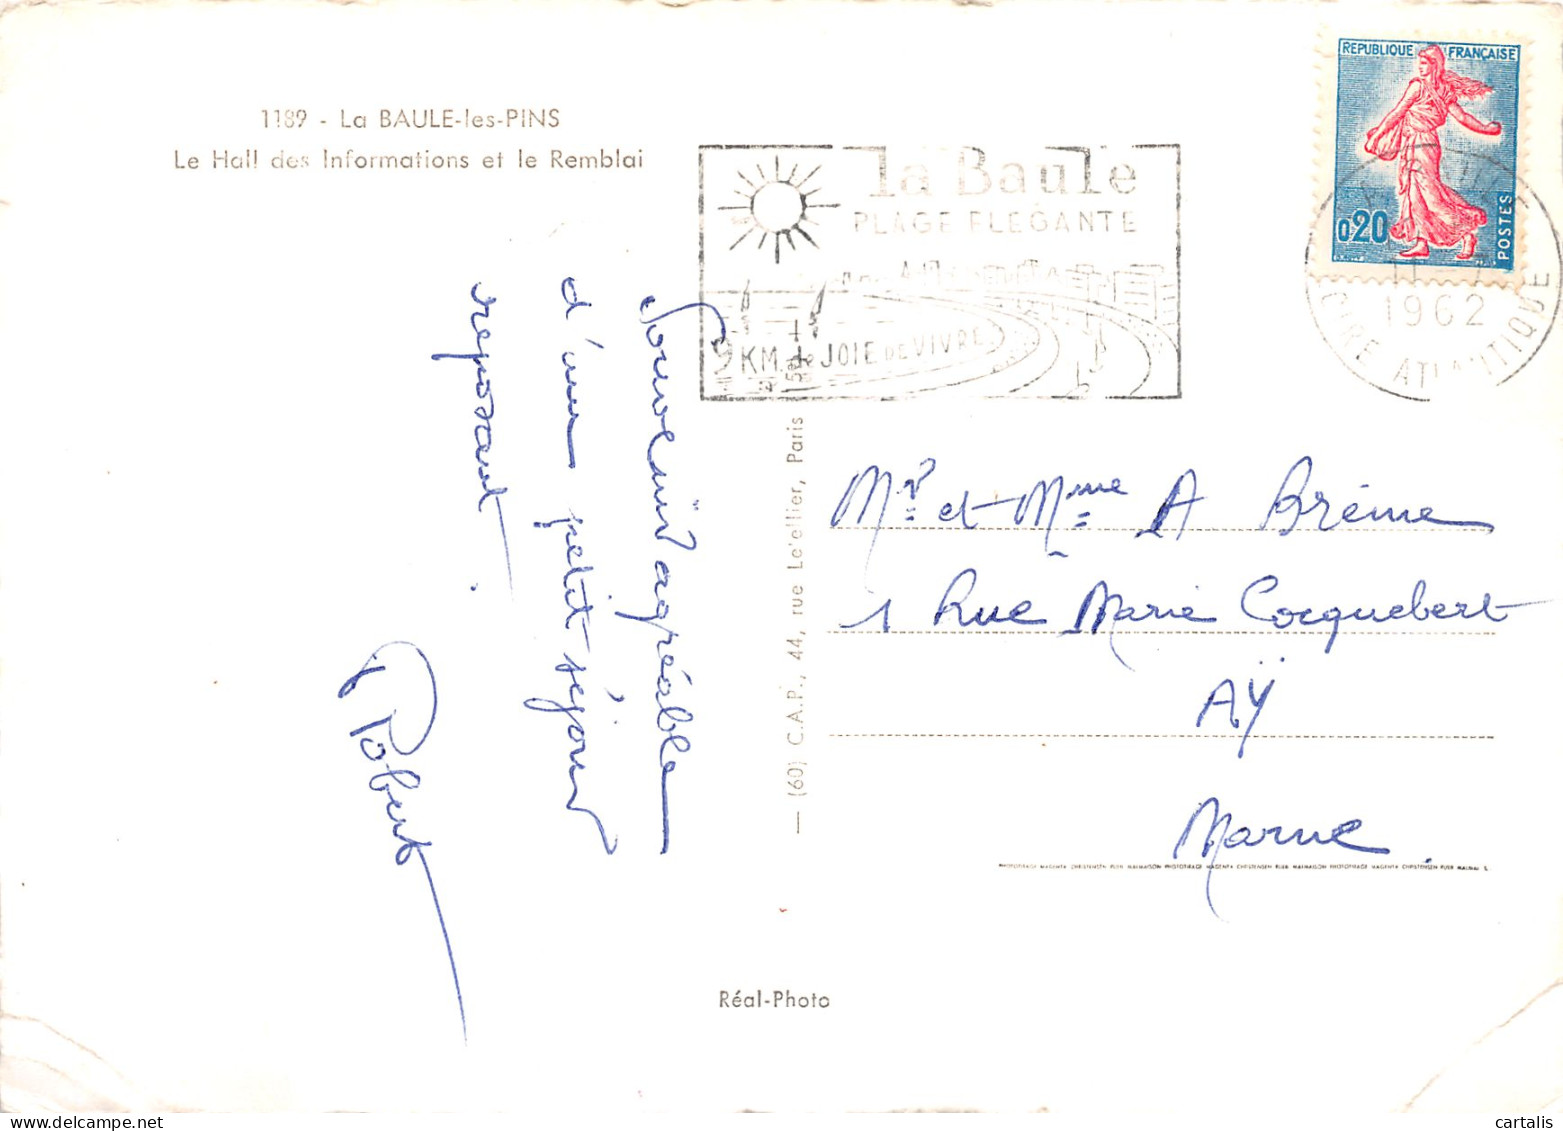 1189 - La BAULE-les-PINS
Le Hall des Informations et le Remblai
la Baule
PLAGE ELEGANTE
9 KM. de JOIE DE VIVRE
REPUBLIQUE FRANÇAISE
0,20
POSTES
1962
LOIRE ATLANTIQUE
Souvenir agréable
d'un petit séjour
reposant.
Robert
— (60) C.A.P., 44, rue Letellier, Paris
Mr et Mme A Brème
1 Rue Marie Cocquebert
AŸ
Marne
Réal-Photo
cartalis